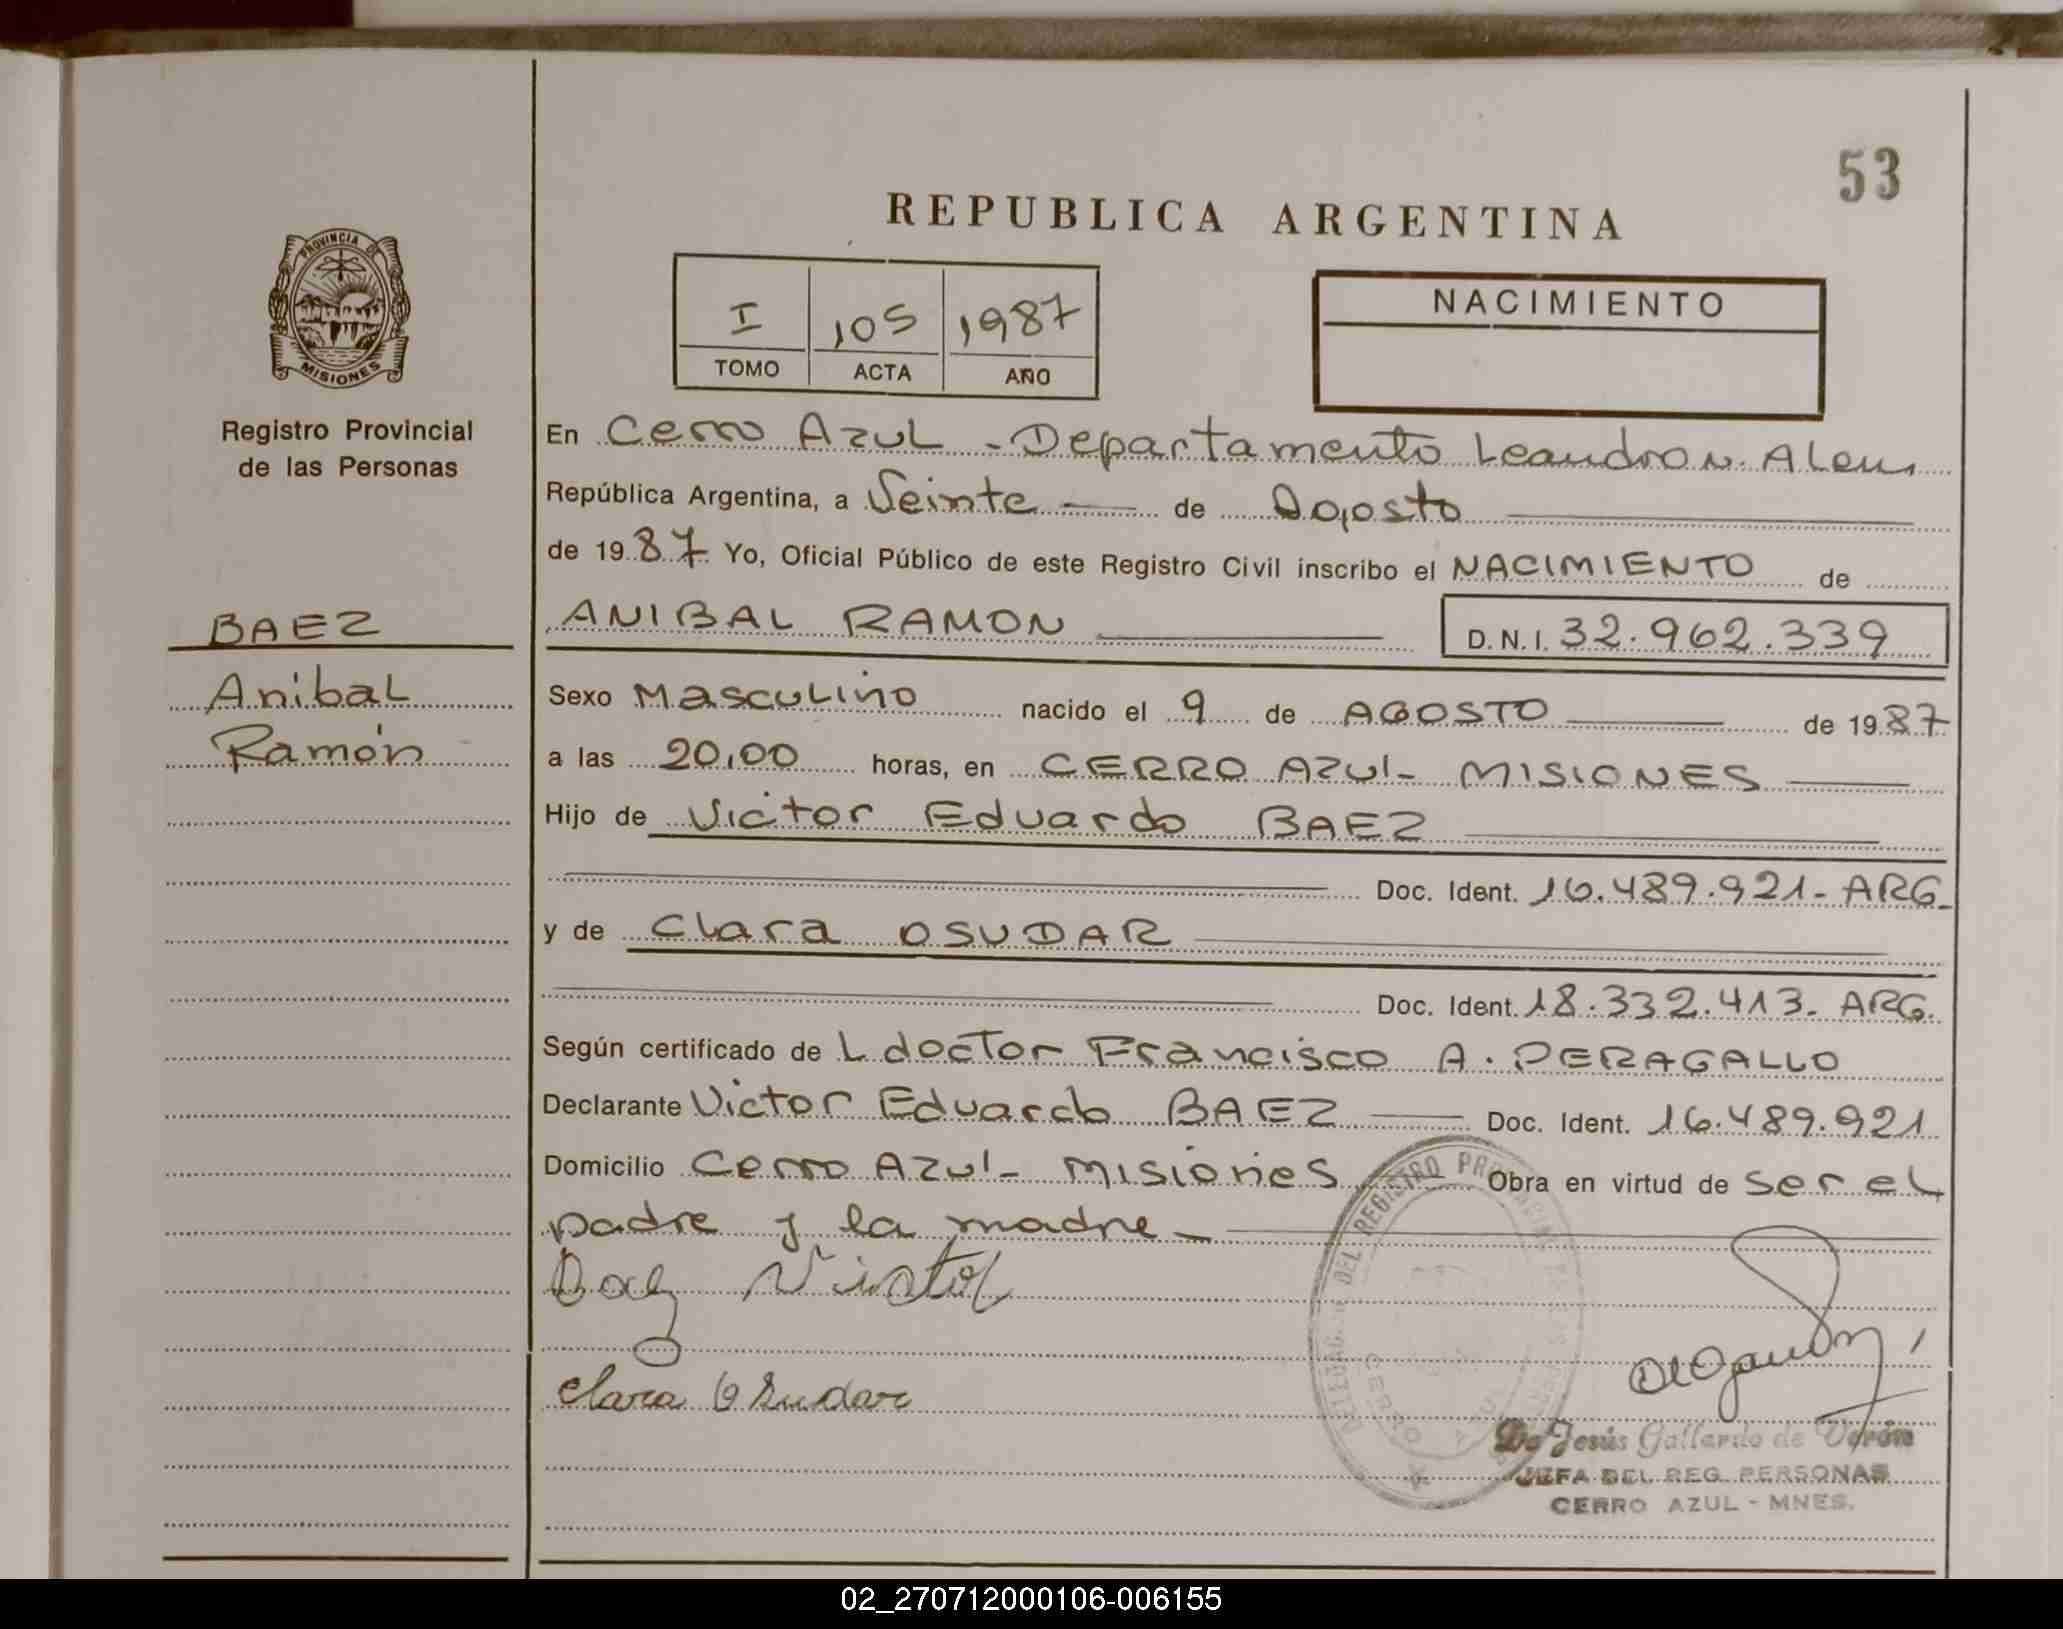 53
REPUBLICA ARGENTINA
PROVINCIA DE
MISIONES
Registro Provincial
de las Personas
I 105 1987
TOMO ACTA AÑO
NACIMIENTO
En Cerro AzuL - Departamento Leandro N. ALem
República Argentina, a Veinte de Agosto
de 1987 Yo, Oficial Público de este Registro Civil inscribo el NACIMIENTO de
BAEZ
Anibal
Ramón
ANIBAL RAMON D.N.I. 32.962.339
Sexo Masculino nacido el 9 de AGOSTO de 1987
a las 20,00 horas, en CERRO AZUL - MISIONES
Hijo de Victor Eduardo BAEZ
Doc. Ident. 16.489.921 - ARG.
y de Clara OSUDAR
Doc. Ident. 18.332.413. ARG.
Según certificado de L doctor Francisco A. PERAGALLO
Declarante Victor Eduardo BAEZ Doc. Ident. 16.489.921
Domicilio Cerro Azul - Misiones Obra en virtud de ser el
padre y la madre
Baez Victor
Clara Osudar
DEL REGISTRO PROVINCIAL
CERRO AZUL
De Jesús Gallardo de Verón
JEFA DEL REG. PERSONAS
CERRO AZUL - MNES.
02_270712000106-006155